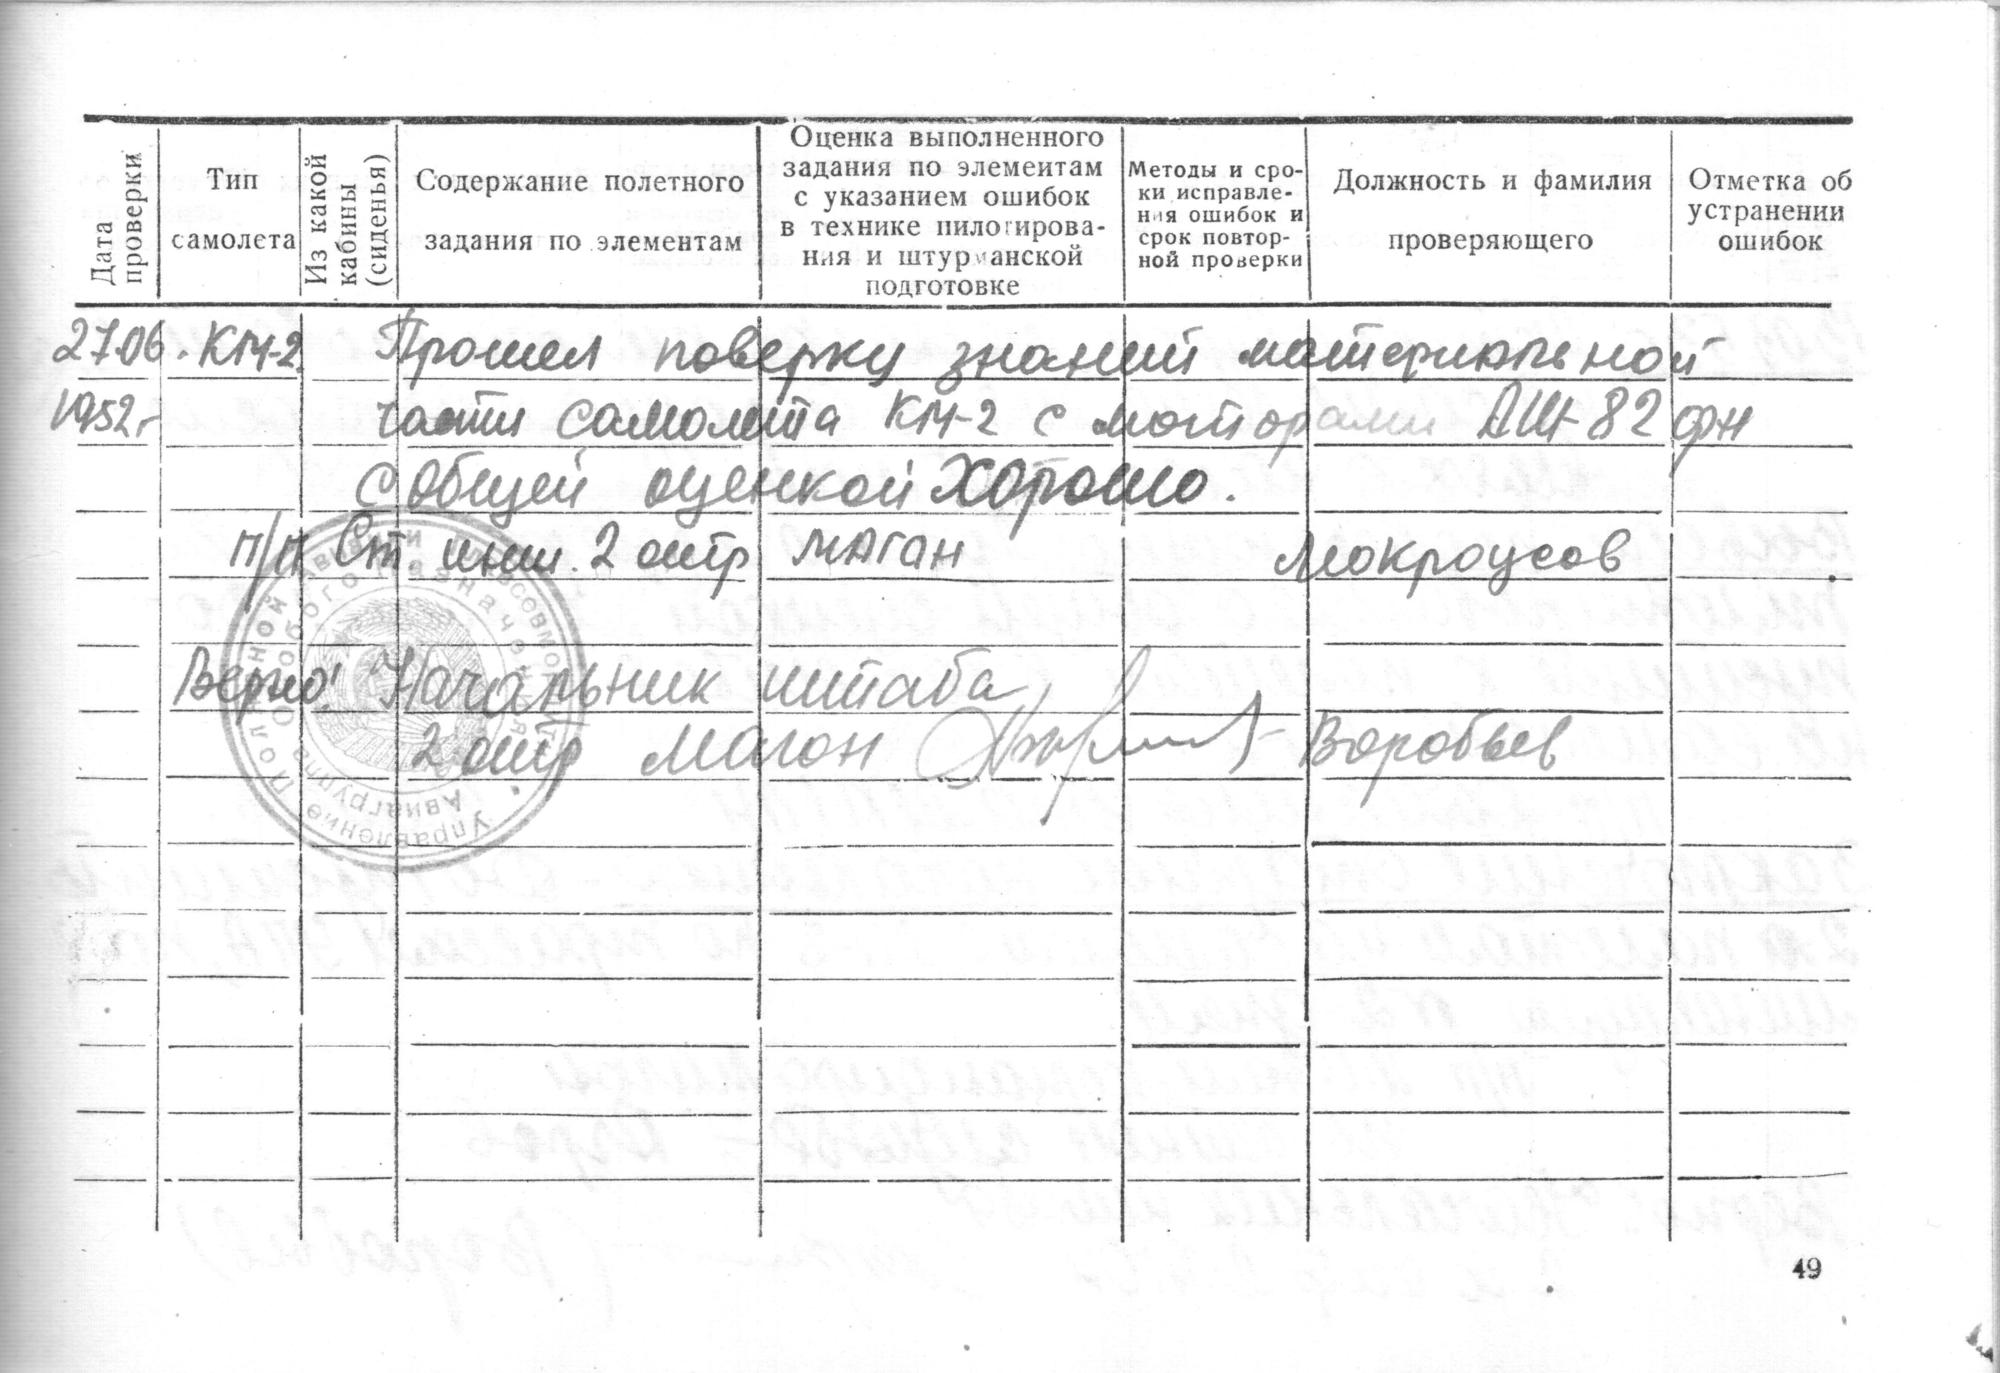 Дата проверки
Тип самолета
Из какой кабины (сиденья)
Содержание полетного задания по элементам
Оценка выполненного задания по элементам с указанием ошибок в технике пилотирова-ния и штурманской подготовке
Методы и сро-ки исправле-ния ошибок и срок повтор-ной проверки
Должность и фамилия проверяющего
Отметка об устранении ошибок
27.06. КМ-2. Прошел поверку знаний материальной
1952г. части самолета КМ-2 с моторами АШ-82 фн
с общей оценкой Хорошо.
п/п Ст инж. 2 оатр МАГОН Мокроусов
Верно! Начальник штаба
2 оатр Магон Воробьев
Управление Полярной Авиации Главсевморпути
Авиагруппа Особого Назначения
49